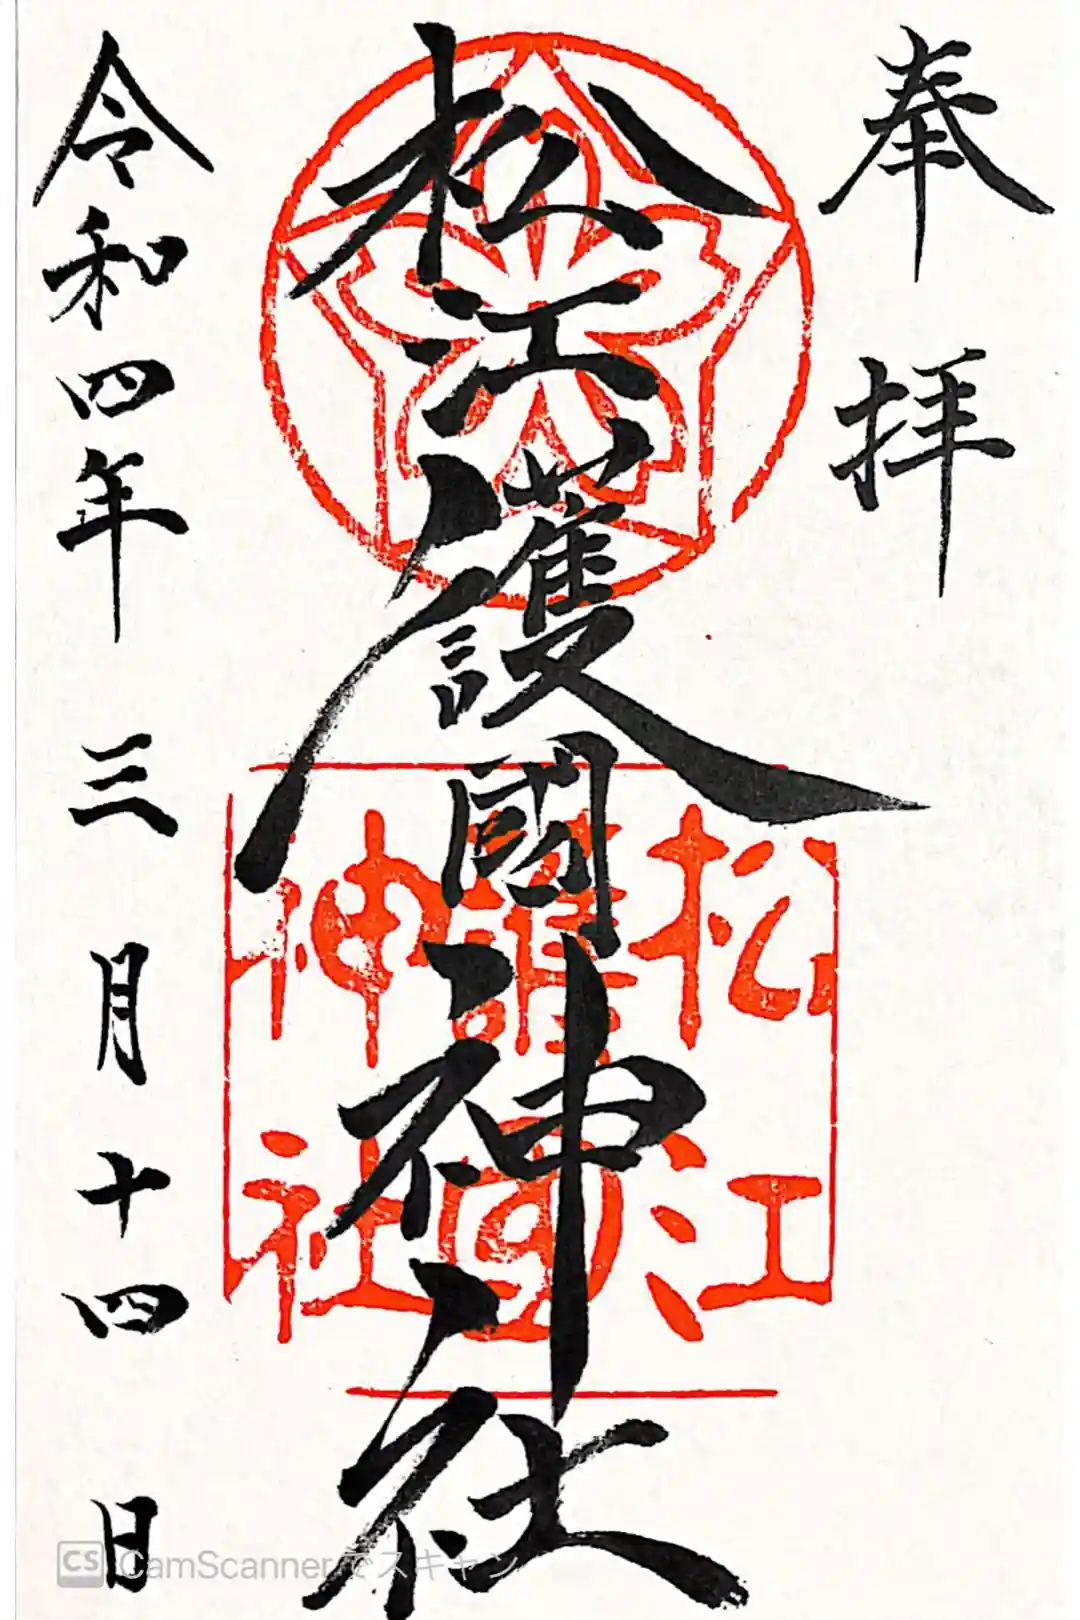 奉拝
松江護國神社
松江
護国
神社
令和四年三月十四日
CS CamScannerでスキャン